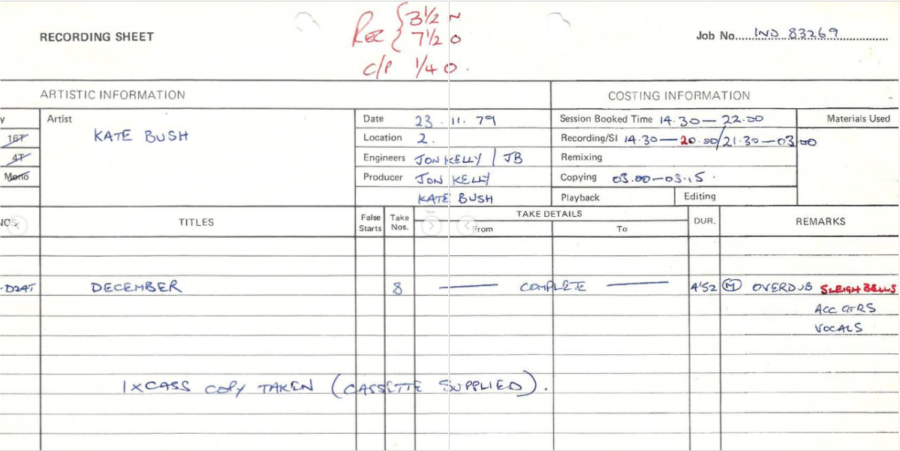 Rec { 3½ N
7½ O
C/P ¼ O.
RECORDING SHEET
Job No. IND 83269
ARTISTIC INFORMATION
COSTING INFORMATION
y
Artist
KATE BUSH
Date 23.11.79
Session Booked Time 14.30 — 22.00
Materials Used
16T
Location 2.
Recording/SI 14.30 — 20.00/21.30 — 03.00
4T
Engineers JON KELLY / JB
Remixing
Mono
Producer JON KELLY
Copying 03.00 — 03.15.
KATE BUSH
Playback
Editing
NOS.
TITLES
False Starts
Take Nos.
TAKE DETAILS
From
To
DUR.
REMARKS
-D24T DECEMBER 8 — COMPLETE — 4'52 (M) OVERDUB SLEIGH BELLS
ACC GTRS
VOCALS
1 x CASS COPY TAKEN (CASSETTE SUPPLIED).